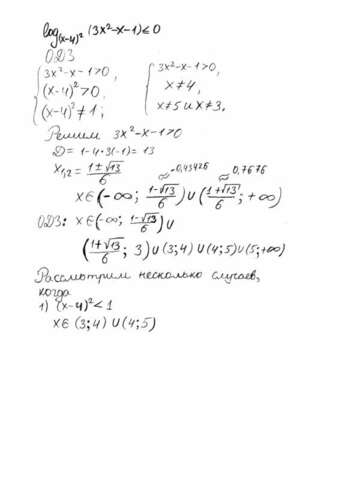 log_(x-4)² (3x²-x-1) ≤ 0
ОДЗ
{ 3x²-x-1>0, { 3x²-x-1>0,
(x-4)²>0, x≠4,
(x-4)²≠1; x≠5 и x≠3,
Решим 3x²-x-1>0
D = 1-4·3(-1) = 13
x₁,₂ = (1±√13)/6 ≈ -0,43426 ≈ 0,7676
x∈(-∞; (1-√13)/6) ∪ ((1+√13)/6; +∞)
ОДЗ: x∈(-∞; (1-√13)/6) ∪
((1+√13)/6; 3) ∪ (3;4) ∪ (4;5) ∪ (5;+∞)
Рассмотрим несколько случаев,
когда
1) (x-4)² < 1
x∈ (3;4) ∪ (4;5)